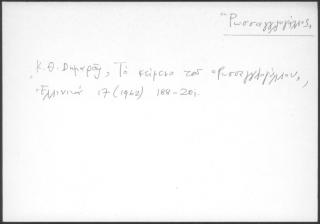 "Ρωσσαγγλογάλλος,
Κ. Θ. Δημαρᾶς, Τὸ κείμενο τοῦ «Ρωσσαγγλογάλλου»,
Ἑλληνικά 17 (1962) 188-201.